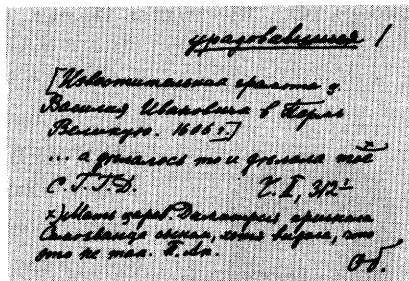 урадовавшися /
[Известительная грамота ц.
Василия Ивановича в Пермь
Великую. 1606 г.]
... а делалось то и делала тое х
С.Г.Г.Д. Ч. II, 312¹
х) Мать царев. Димитрия признала
Самозванца сыном, хотя видела, что
это не так. П. Ан.
Об.